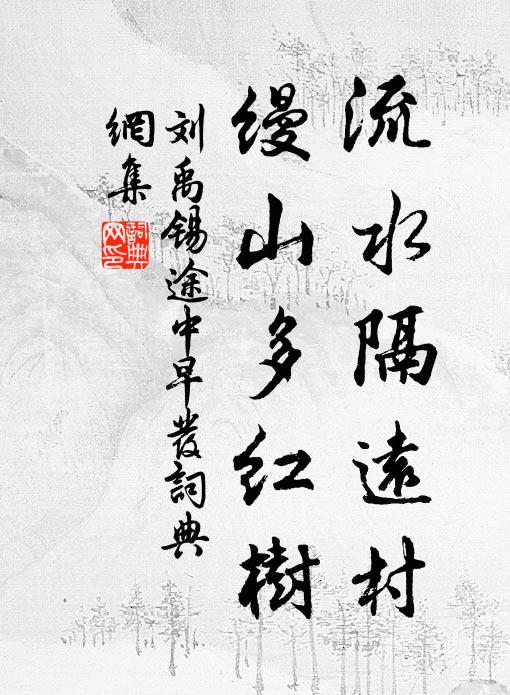 流水隔遠村
縵山多红樹
刘禹锡途中早發詞典
網集
詞典网印